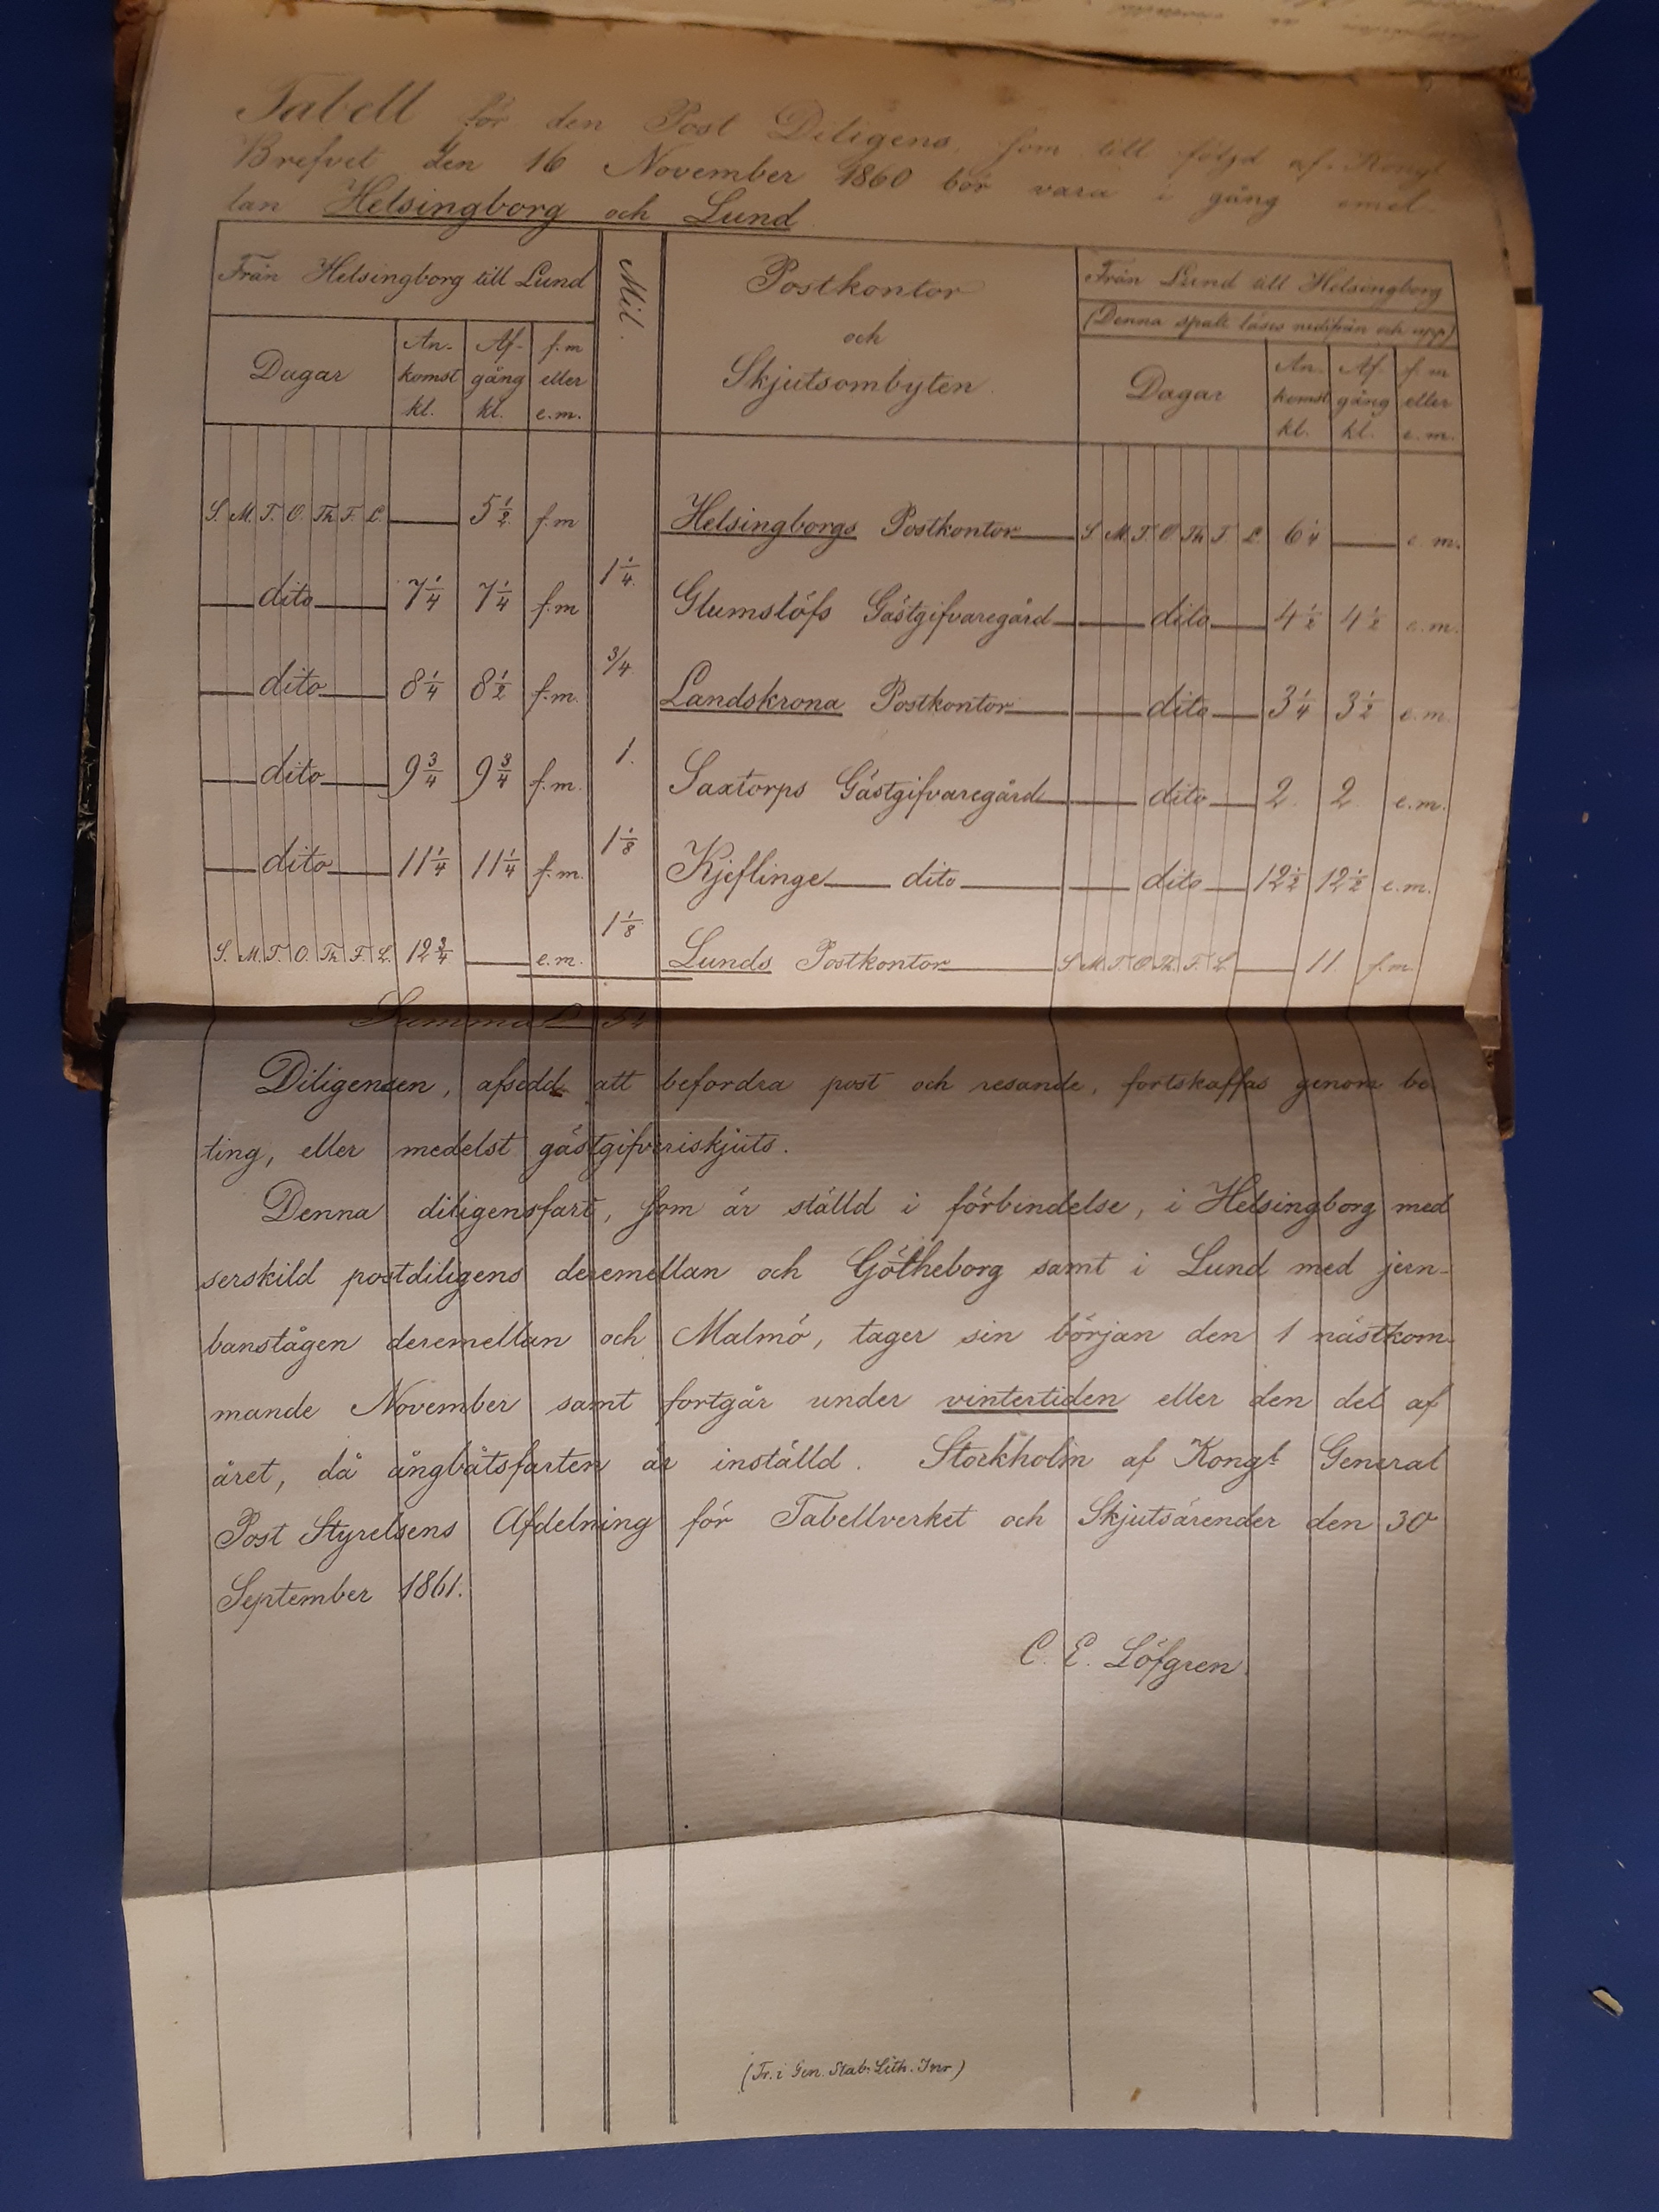 Tabell för den Post Diligens, som till följd af Kongl
Brefvet den 16 November 1860 bör vara i gång emel-
lan Helsingborg och Lund
Från Helsingborg till Lund Mil. Postkontor och Skjutsombyten. Från Lund till Helsingborg
(Denna spalt läses nedifrån och upp)
Dagar An-komst kl. Af-gång kl. f.m eller e.m. Dagar An-komst kl. Af-gång kl. f.m eller e.m.
S. M. T. O. Th F. L. — 5 1/2 f.m Helsingborgs Postkontor S M. T. O Th F. L. 6 1/4 — e.m.
1 1/4.
dito 7 1/4 7 1/4 f.m Glumslöfs Gästgifvaregård dito 4 1/2 4 1/2 e.m.
3/4.
dito 8 1/4 8 1/2 f.m. Landskrona Postkontor dito 3 1/4 3 1/2 e.m.
1.
dito 9 3/4 9 3/4 f.m. Saxtorps Gästgifvaregård dito 2. 2 e.m.
1 1/8
dito 11 1/4 11 1/4 f.m. Kjeflinge dito dito 12 1/2 12 1/2 e.m.
1 1/8
S. M. T. O. Th F. L. 12 3/4 — e.m. Lunds Postkontor S M. T. O. Th. F. L. — 11 f.m.
Summa 5 1/4
Diligensen, afsedd att befordra post och resande, fortskaffas genom be
ting, eller medelst gästgifveriskjuts.
Denna diligensfart, som är ställd i förbindelse, i Helsingborg med
serskild postdiligens deremellan och Götheborg samt i Lund med jern-
banstågen deremellan och Malmö, tager sin början den 1 nästkom-
mande November samt fortgår under vintertiden eller den del af
året, då ångbåtsfarten är inställd. Stockholm af Kongl General
Post Styrelsens Afdelning för Tabellverket och Skjutsärender den 30
September 1861.
C. E. Löfgren.
(Tr. i Gen. Stab: Lith. Inr)